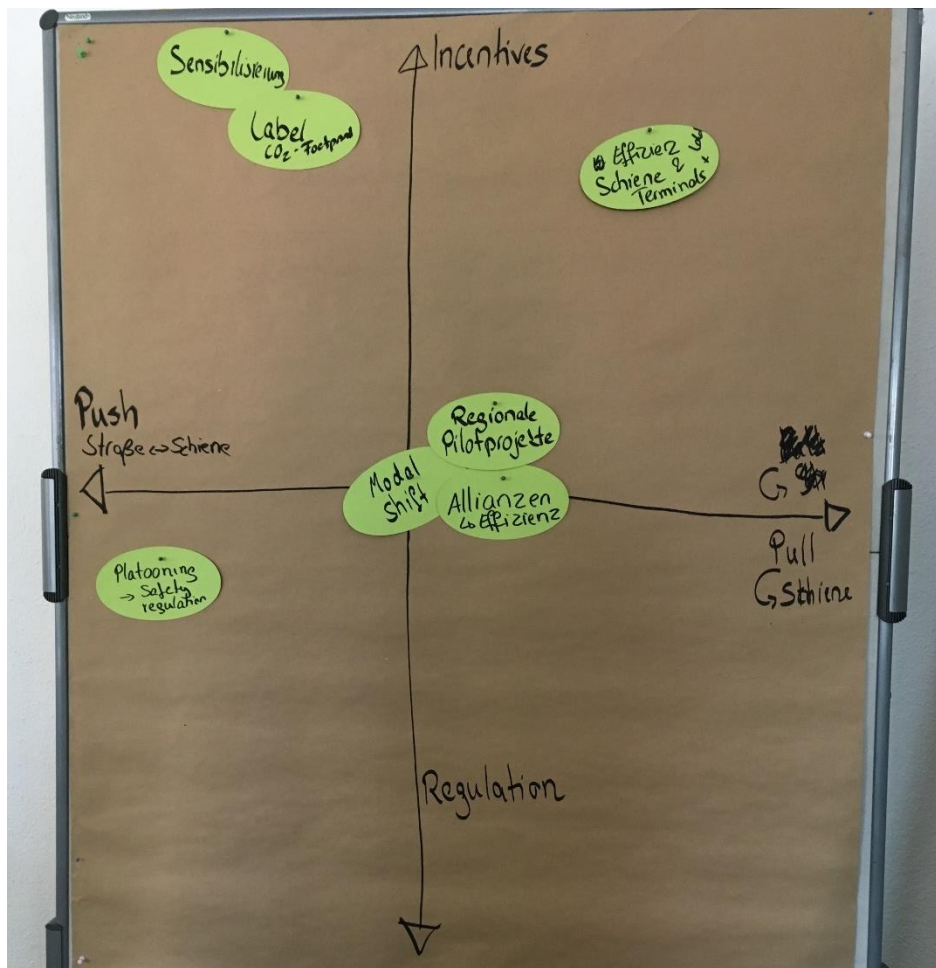 Incentives
Sensibilisierung
Label
CO₂-Footprint
Effizienz
Schiene &
Terminals
Push
Straße ↔ Schiene
Regionale
Pilotprojekte
Modal
Shift
Allianzen
↳ Effizienz
Pull
↳ Schiene
Platooning
→ Safety
regulation
Regulation